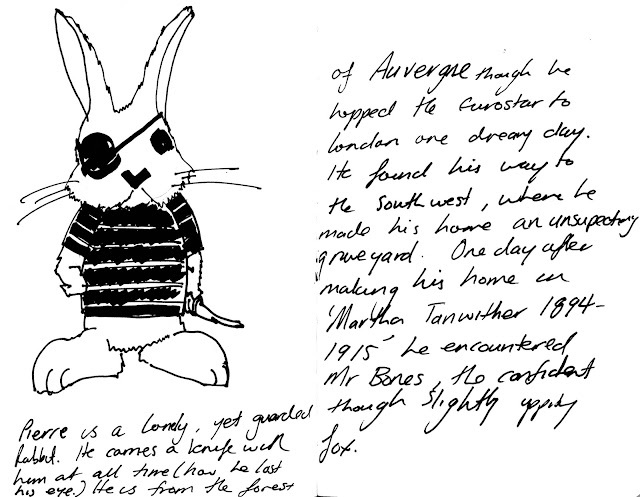 Pierre is a lonely, yet guarded
Rabbit. He carries a knife with
him at all time (how he lost
his eye.) He is from the forest
of Auvergne though he
hopped the Eurostar to
London one dreary day.
He found his way to
the South west, where he
made his home an unsuspecting
graveyard. One day after
making his home in
'Martha Tanwither 1894-
1915' he encountered
Mr Bones, the confident
though slightly uppity
fox.